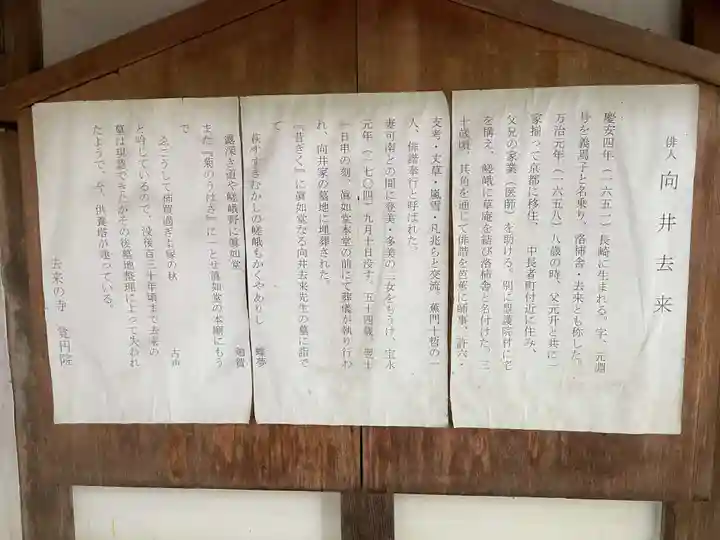 俳人 向井去来
慶安四年(一六五一)長崎に生まれる。字、元淵
号を義焉子と名乗り、落柿舎・去来とも称した。
万治元年(一六五八)八歳の時、父元升と共に一
家揃って京都に移住、 中長者町付近に住み、
父兄の家業(医師)を助ける。別に聖護院付に宅
を構え、嵯峨に草庵を結び落柿舎と名付けた。三
十歳頃、其角を通じて俳諧を芭蕉に師事、許六・
支考・丈草・嵐雪・凡兆らと交流、蕉門十哲の一
人、俳諧奉行と呼ばれた。
妻可南との間に登美・多美の二女をもうけ、宝永
元年(一七〇四)九月十日没す。五十四歳。翌十
一日申の刻、眞如堂本堂の前にて葬儀が執り行わ
れ、向井家の墓地に埋葬された。
『昔ぎく』に眞如堂なる向井去来先生の墓に詣で
て
萩やすすきむかしの嵯峨もかくやありし 蝶夢
露深き道や嵯峨野に眞如堂
また『菊のうはさ』に一とせ眞如堂の本廟にもう
で
ゑこうして佈置過ぎよ塚の秋 古声
と吟じているので、没後百三十年頃まで去来の
墓は現認できたがその後墓地整理によって失われ
たようで、今、供養塔が建っている。
去来の寺 覚円院